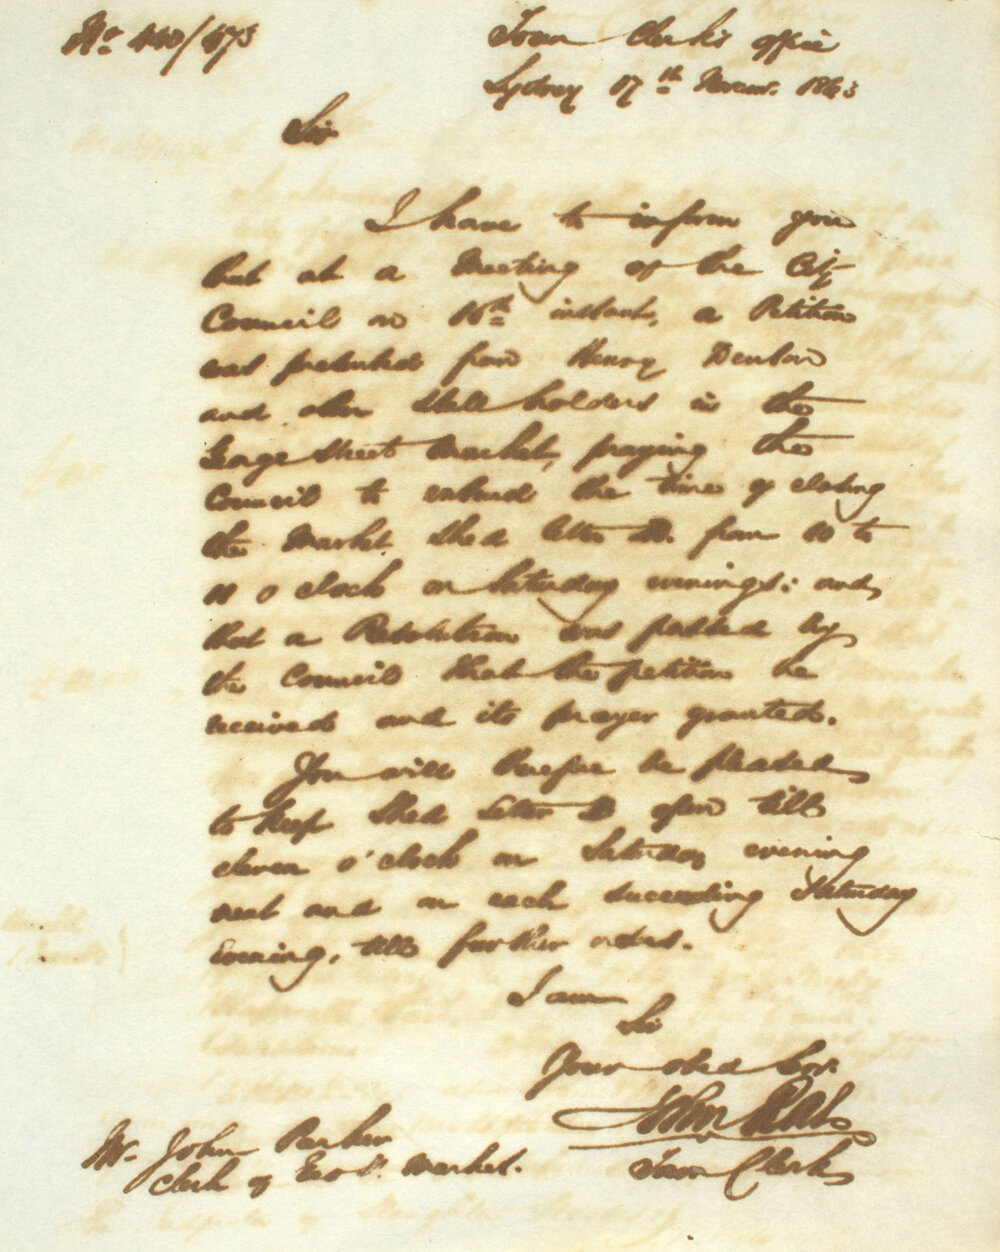 No 440/673
Town Clerk's office
Sydney 17th Novr. 1863
Sir
I have to inform you
that at a Meeting of the City
Council on 16th instant, a Petition
was presented from Henry Denton
and other Stall holders in the
George Street Market, praying the
Council to extend the time of closing
the Market Shed letter D. from 10 to
11 o clock on Saturday evenings: and
that a Resolution was passed by
the Council that the petition be
received and its prayer granted.
You will therefore be pleased
to keep Shed Letter D open till
eleven o'clock on Saturday evening
next and on each succeeding Saturday
Evening, till further orders.
I am
Sir
Your obed Ser.
John
Town Clerk
Mr. John Parker
Clerk of Geo St. Market.